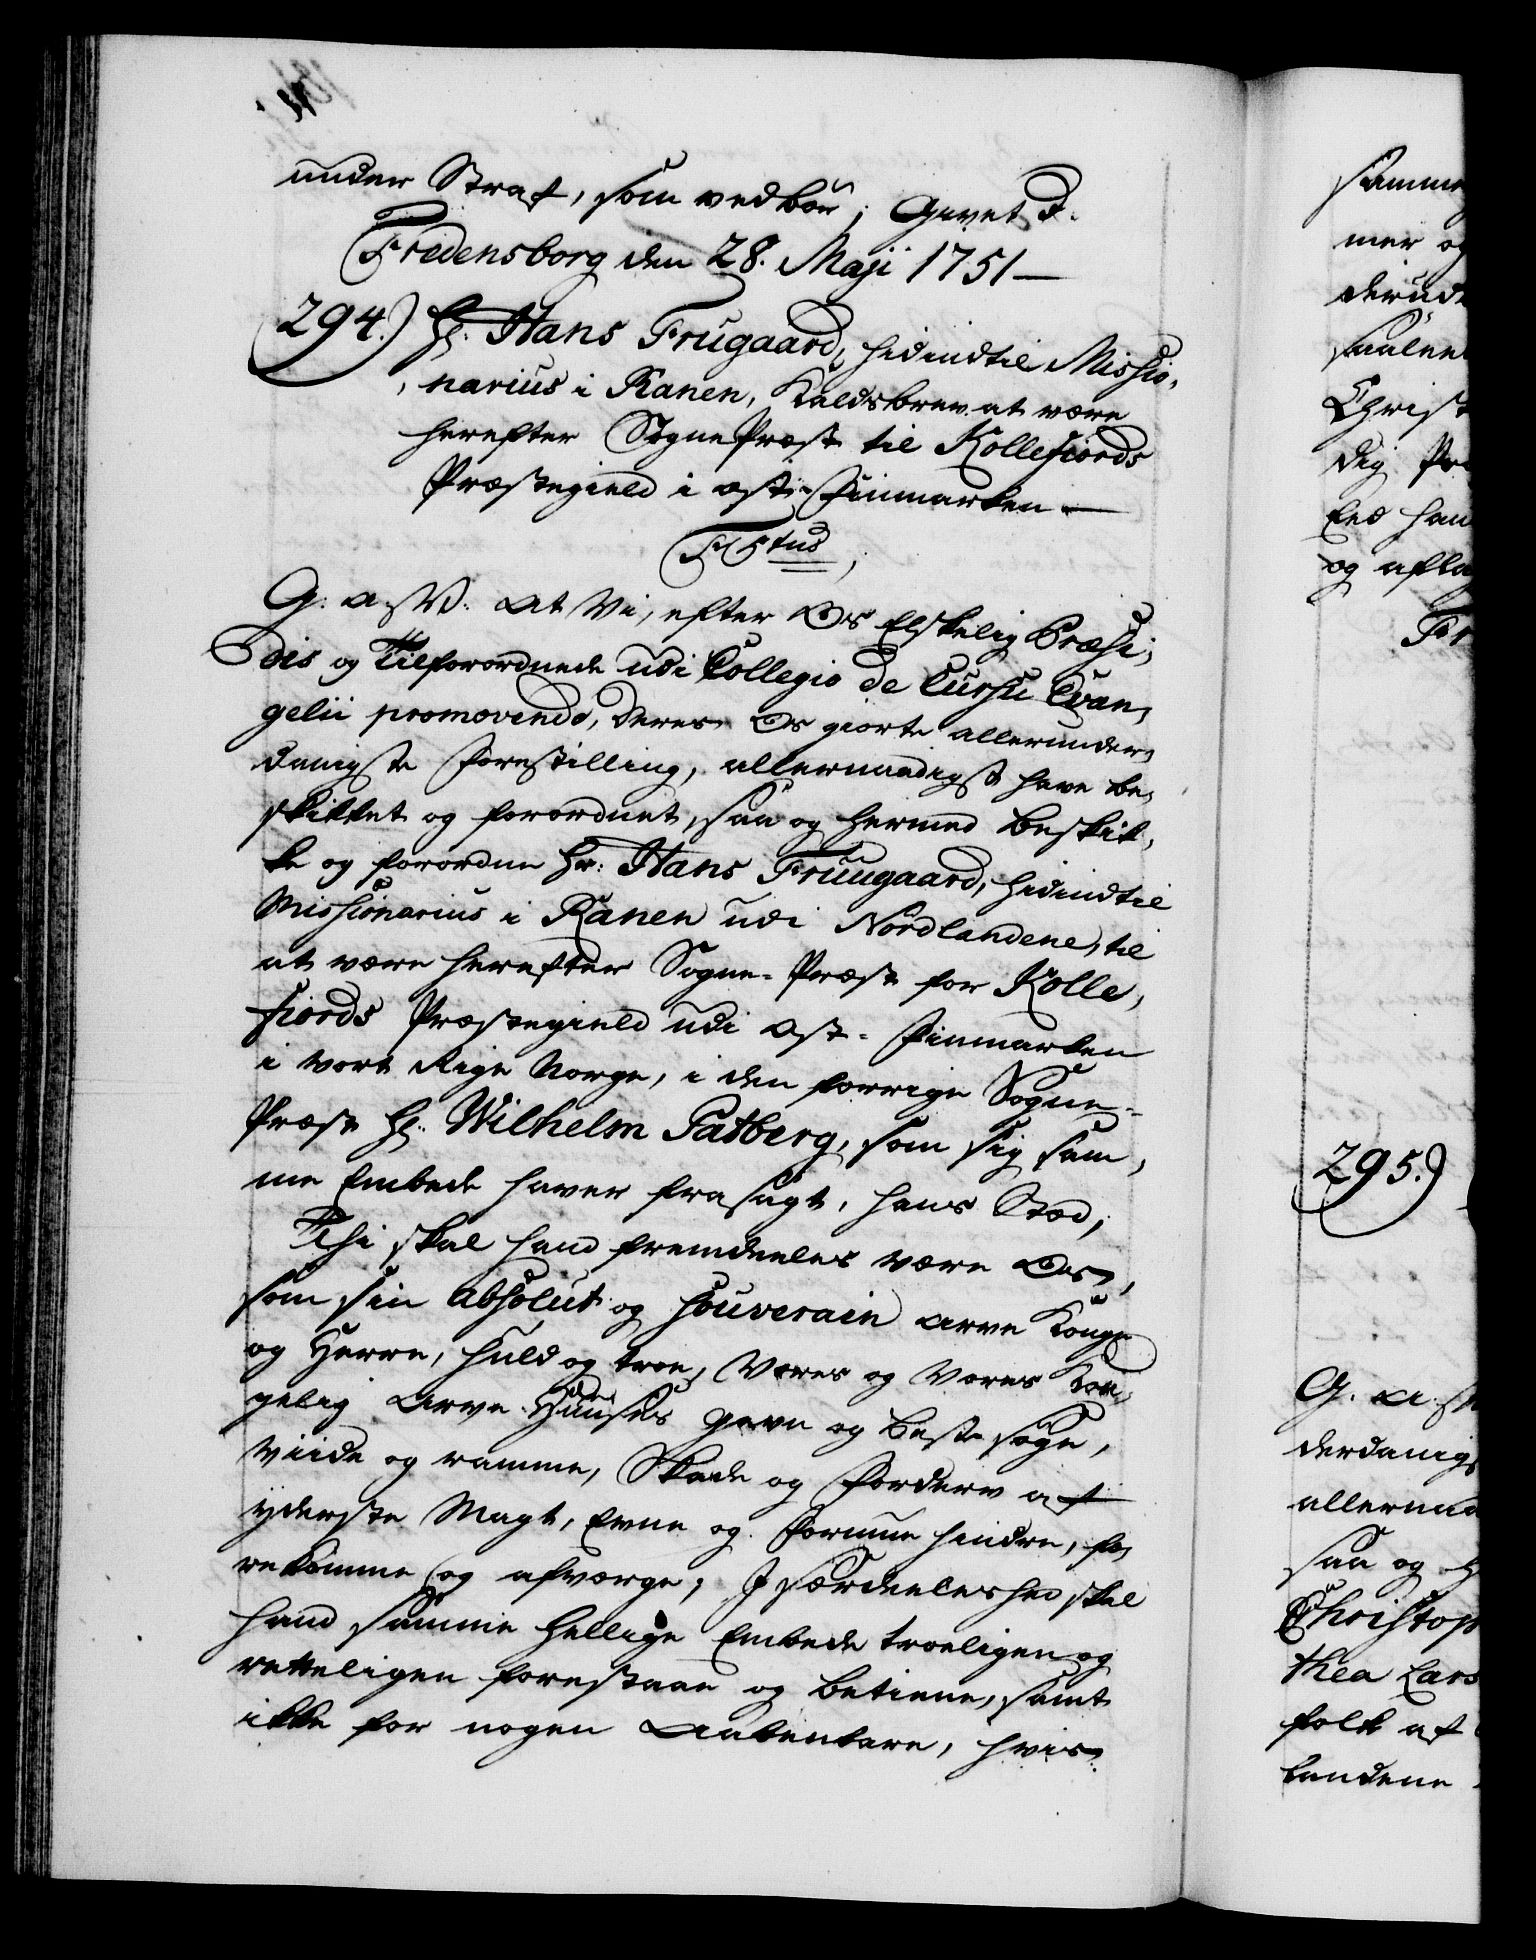 under Straf, som vedbør; Givet d:
Fredensborg den 28. Maji 1751 —
294.) Hr. Hans Frugaard, hidindtil Missio,
narius i Ranen, Kaldsbrev at være
herefter SognePræst til Kollefiords
Præstegield i ost-Finmarken. —
F 5tus,
G. a. W. At Vi, efter Os Elskelig Præsi,
dis og Tilforordnede udi Collegio de Cursu Evan,
gelii promovendo, deres Os giorte allerunder,
danigste Forestilling, allernaadigst have be,
skikket og forordnet, saa og hermed beskik,
ke og forordne Hr. Hans Fruugaard, hidindtil
Missionarius i Ranen udi Nordlandene, til
at være herefter Sogne-Præst for Kolle,
fiords Præstegield udi Ost-Finmarken
i vort Rige Norge, i den forrige Sogne-
Præst Hr. Wilhelm Patberg, som sig sam,
me Embede haver frasagt, hans Sted;
Thi skal hand fremdeeles være Os,
som sin absolut og souverain arve Konge
og Herre, huld og troe, Vores og Vores Kon,
gelig Arve-Huuses gavn og beste søge,
Viide og ramme, Skade og Forderv af
yderste Magt, Evne og Formue hindre, fo,
rekomme og afværge; I særdeeleshed skal
hand samme hellige Embede troeligen og
retteligen forestaae og betiene, samt
ikke for nogen Aabenbare, hvis
samme
mer og
derud
saalee
Christ
dig Pr
Eed han
og afla
Fr
295.)
G. a.
derdanigs
allernaa
saa og h
Christop
thea Lars
folk af
landene